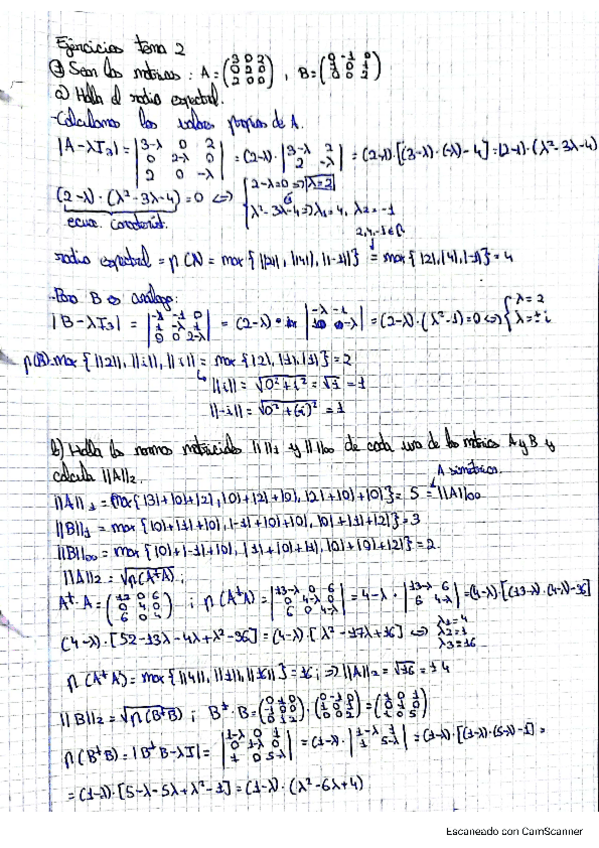 Ejercicios tema 2
① Sean las matrices: A = (3 0 2; 0 2 0; 2 0 0), B = (0 -1 0; 1 0 1; 0 0 2)
a) Halla el radio espectral.
-Calculamos los valores propios de A.
|A-λI₃| = |3-λ 0 2; 0 2-λ 0; 2 0 -λ| = (2-λ)·|3-λ 2; 2 -λ| = (2-λ)·[(3-λ)·(-λ)-4] = (2-λ)·(λ²-3λ-4)
(2-λ)·(λ²-3λ-4)=0 ⇔ {2-λ=0 ⇒ λ=2
λ²-3λ-4 ⇒ λ₁=4, λ₂=-1
ecua. característ.
radio espectral = ρ(A) = max{||2||, ||4||, ||-1||} = max{|2|,|4|,|-1|} = 4
-Para B es análogo:
|B-λI₃| = |-λ -1 0; 1 -λ 1; 0 0 2-λ| = (2-λ)· |-λ -1; 1 -λ| = (2-λ)·(λ²-1)=0 ⇔ {λ=2
λ=±i
ρ(B)=max{||2||, ||i||, ||-i||} = max{|2|,|1|,|1|} = 2
||i|| = √0²+1² = √1 = 1
||-i|| = √0²+(-1)² = 1
b) Halla las normas matriciales || ||₁ y || ||∞ de cada una de las matrices A y B y
calcula ||A||₂.
A simétrica.
||A||₁ = max{|3|+|0|+|2|, |0|+|2|+|0|, |2|+|0|+|0|} = 5 = ||A||∞
||B||₁ = max{|0|+|1|+|0|, |-1|+|0|+|0|, |0|+|1|+|2|} = 3
||B||∞ = max{|0|+|-1|+|0|, |1|+|0|+|1|, |0|+|0|+|2|} = 2
||A||₂ = √ρ(AᵗA);
Aᵗ·A = (13 0 6; 0 4 0; 6 0 4); ρ(AᵗA) = |13-λ 0 6; 0 4-λ 0; 6 0 4-λ| = 4-λ·|13-λ 6; 6 4-λ| = (4-λ)·[(13-λ)·(4-λ)-36]
(4-λ)·[52-13λ-4λ+λ²-36] = (4-λ)·[λ²-17λ+16] ⇔ λ₁=4
λ₂=1
λ₃=16
ρ(AᵗA) = max{||4||, ||1||, ||16||} = 16; ⇒ ||A||₂ = √16 = 4
||B||₂ = √ρ(BᵗB); Bᵗ·B = (0 1 0; -1 0 0; 0 1 2)·(0 -1 0; 1 0 1; 0 0 2) = (1 0 1; 0 1 0; 1 0 5)
ρ(BᵗB) = |BᵗB-λI| = |1-λ 0 1; 0 1-λ 0; 1 0 5-λ| = (1-λ)·|1-λ 1; 1 5-λ| = (1-λ)·[(1-λ)·(5-λ)-1] =
= (1-λ)·[5-λ-5λ+λ²-1] = (1-λ)·(λ²-6λ+4)
Escaneado con CamScanner